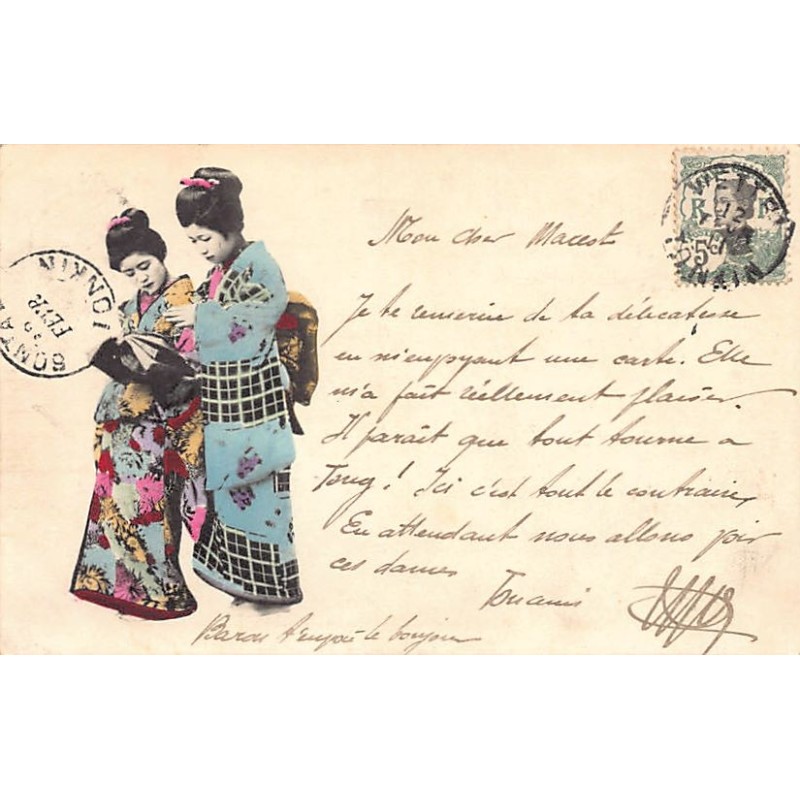 Mon cher Marest
Je te remercie de ta délicatesse
en m'envoyant une carte. Elle
m'a fait réellement plaisir.
Il paraît que tout tourne a
Tong! Ici c'est tout le contraire,
En attendant nous allons voir
ces dames
Ton ami
Baron t'envoie le bonjour
SONTAY
TONKIN
FEVR
VIETRI
TONKIN
R F
5